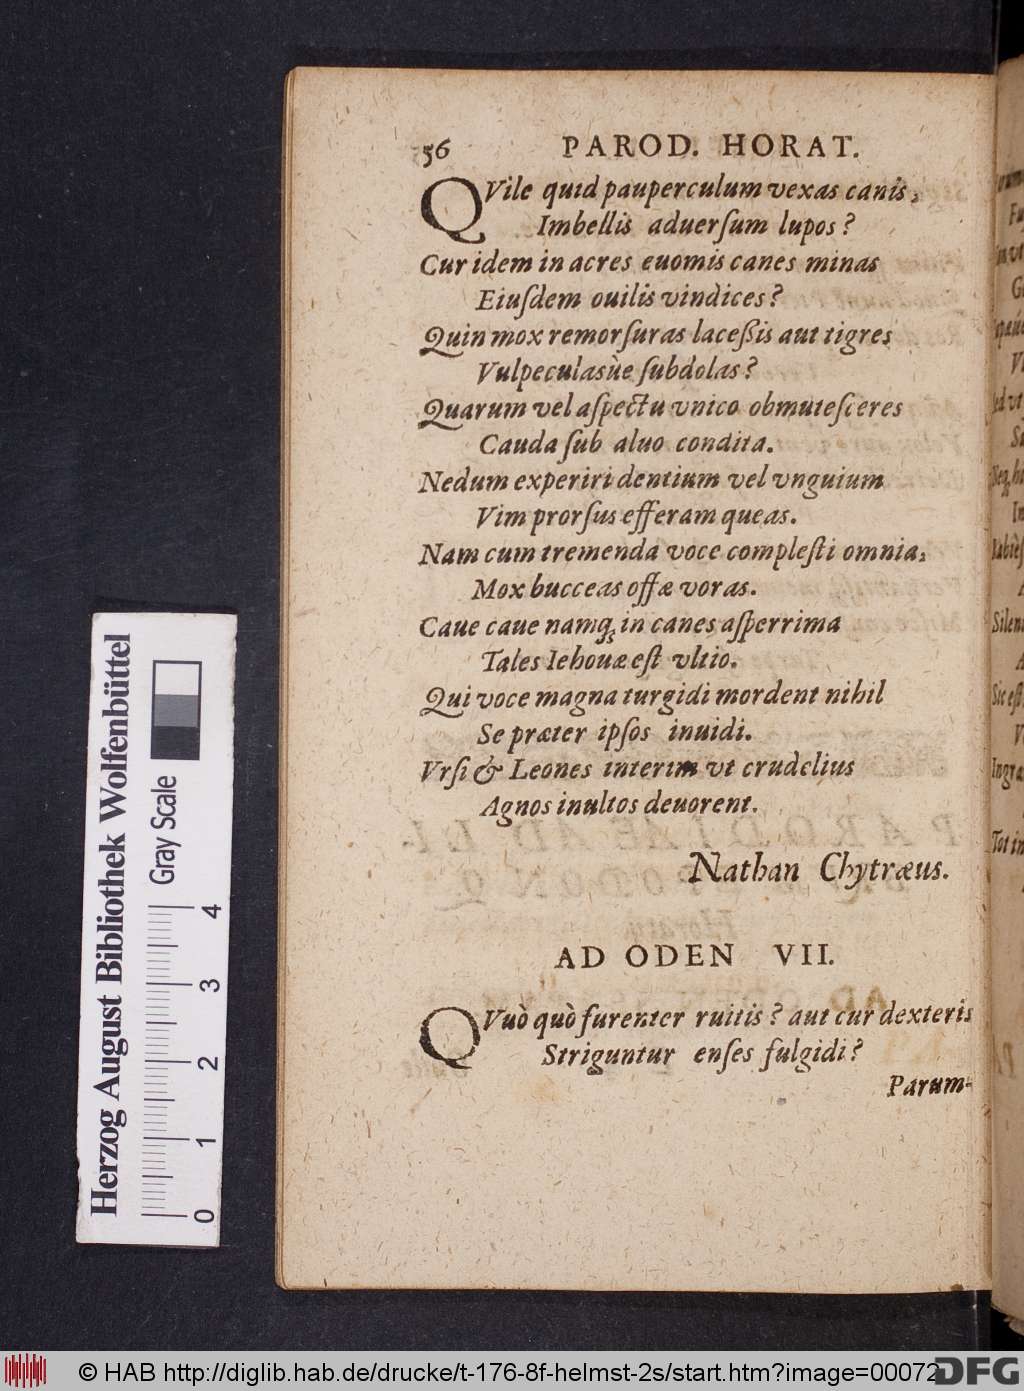 56 PAROD. HORAT.
QVile quid pauperculum vexas canis,
Imbellis aduerſum lupos?
Cur idem in acres euomis canes minas
Eiuſdem ouilis vindices?
Quin mox remorſuras laceßis aut tigres
Vulpeculasùe ſubdolas?
Quarum vel aſpectu vnico obmuteſceres
Cauda ſub aluo condita.
Nedum experiri dentium vel vnguium
Vim prorſus efferam queas.
Nam cum tremenda voce compleſti omnia,
Mox bucceas offæ voras.
Caue caue namq; in canes aſperrima
Tales Iehouæ eſt vltio.
Qui voce magna turgidi mordent nihil
Se præter ipſos inuidi.
Vrſi & Leones interim vt crudelius
Agnos inultos deuorent.
Nathan Chytræus.
AD ODEN VII.
QVuò quò furenter ruitis? aut cur dexteris
Striguntur enſes fulgidi?
Parum-
Herzog August Bibliothek Wolfenbüttel
Gray Scale
0 1 2 3 4
© HAB http://diglib.hab.de/drucke/t-176-8f-helmst-2s/start.htm?image=00072
DFG